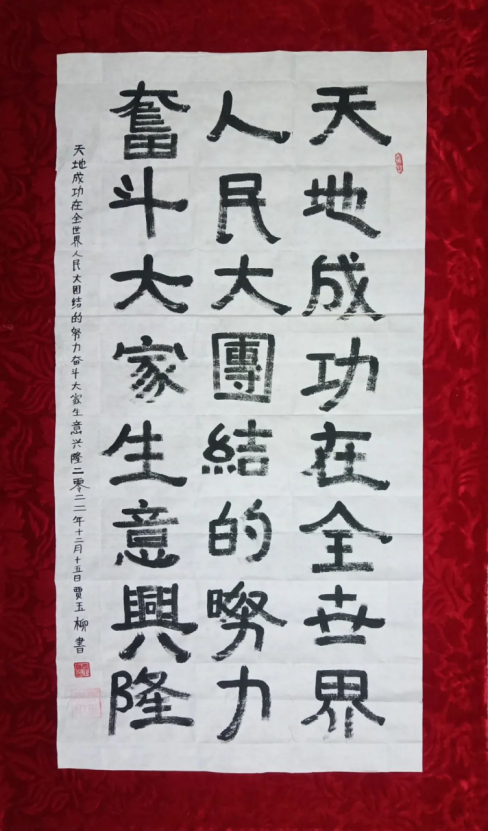 天地成功在全世界
人民大團結的努力
奮斗大家生意興隆
天地成功在全世界人民大团结的努力奋斗大家生意兴隆二零二二年十二月十五日贾玉柳書